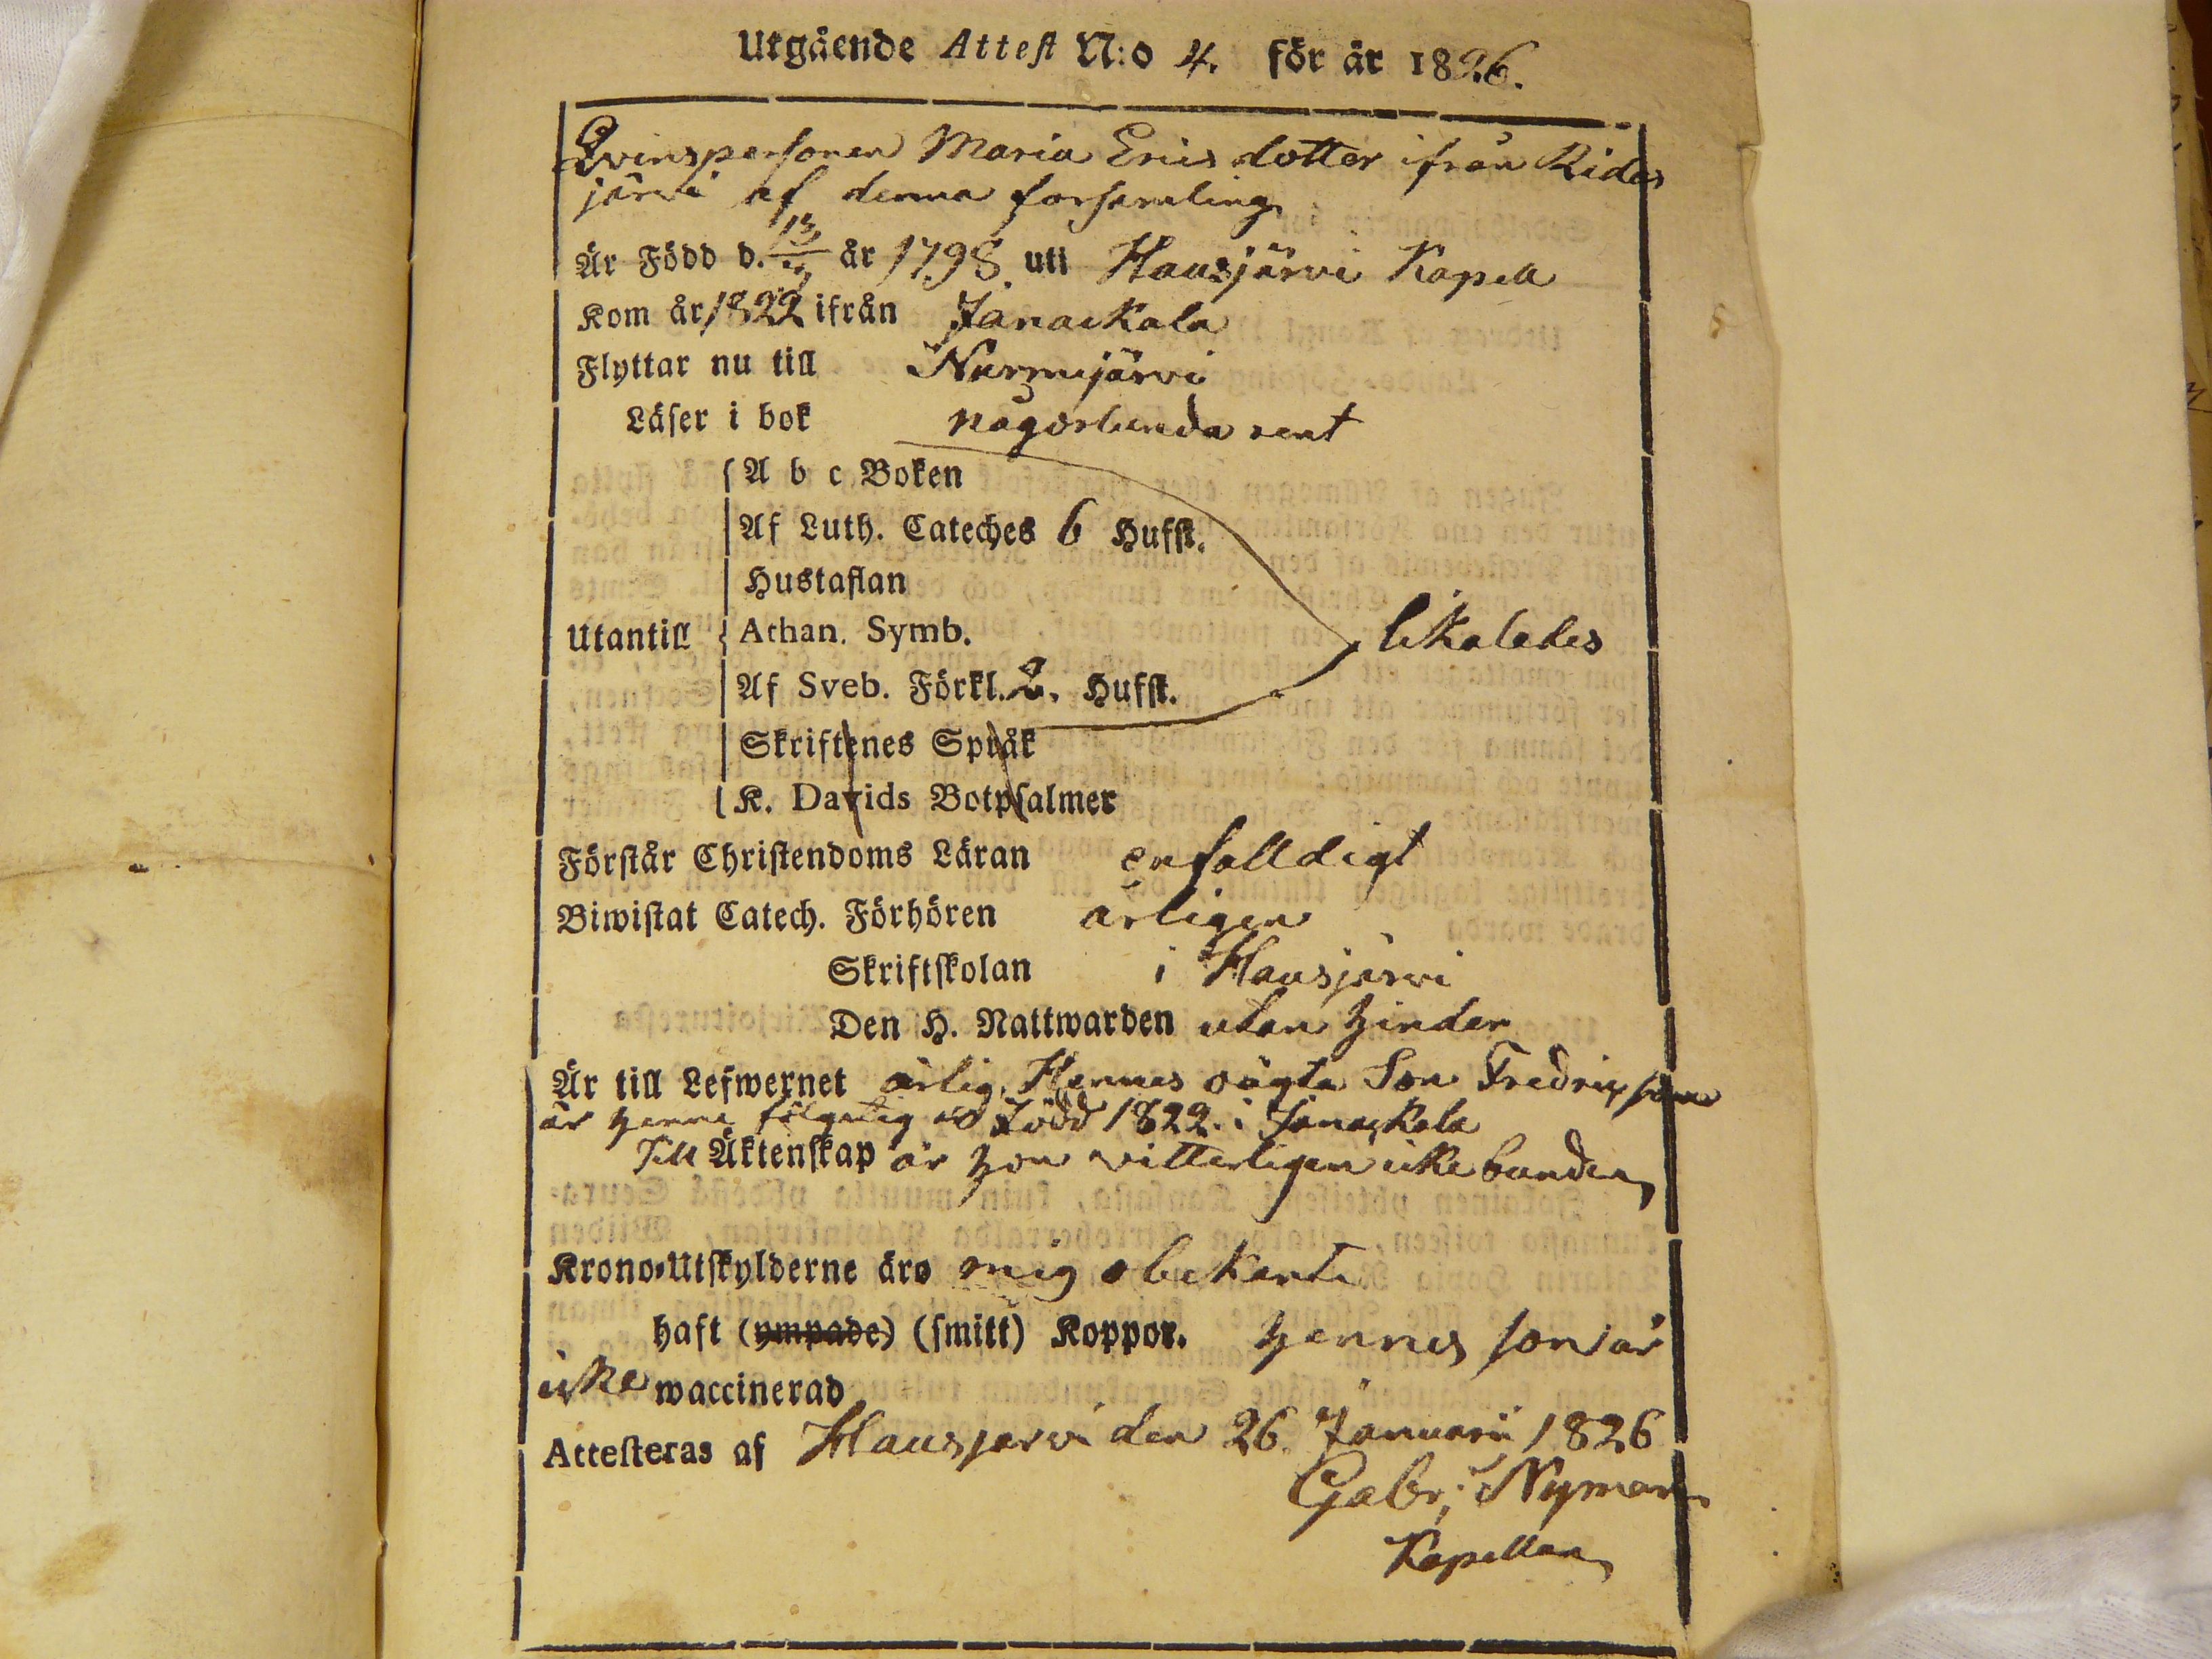 Utgående Attest N:o 4. för år 1826.
Qvinspersonen Maria Erics dotter ifrån Rides
järvi af denna församling
Är Född d. 13/ år 1798 uti Hausjärvi Kapell
Kom år 1822 ifrån Janackala
Flyttar nu till Nurmijärvi
Läser i bok någorlunda rent
A b c Boken
Af Luth. Cateches 6 Hufst.
Hustaflan
Utantill Athan. Symb. likaledes
Af Sveb. Förkl. 2. Hufst.
Skriftenes Språk
K. Davids Botpsalmer
Förstår Christendoms Läran enfalldigt
Biwistat Catech. Förhören årligen
Skriftskolan i Hausjärvi
Den H. Nattwarden utan hinder
Är till Lefwernet ärlig. Hennes oägta Son Fredric som
är henne följagtig är Född 1822. i Janackala
Till Äktenskap är hon vitterligen icke bunden
Krono-Utskylderne äro mig obekante
haft (ympade) (smitt) Koppor. hennes son är
icke waccinerad
Attesteras af Hausjärvi den 26. Januarii 1826
Gabr: Nyman
Kapellan